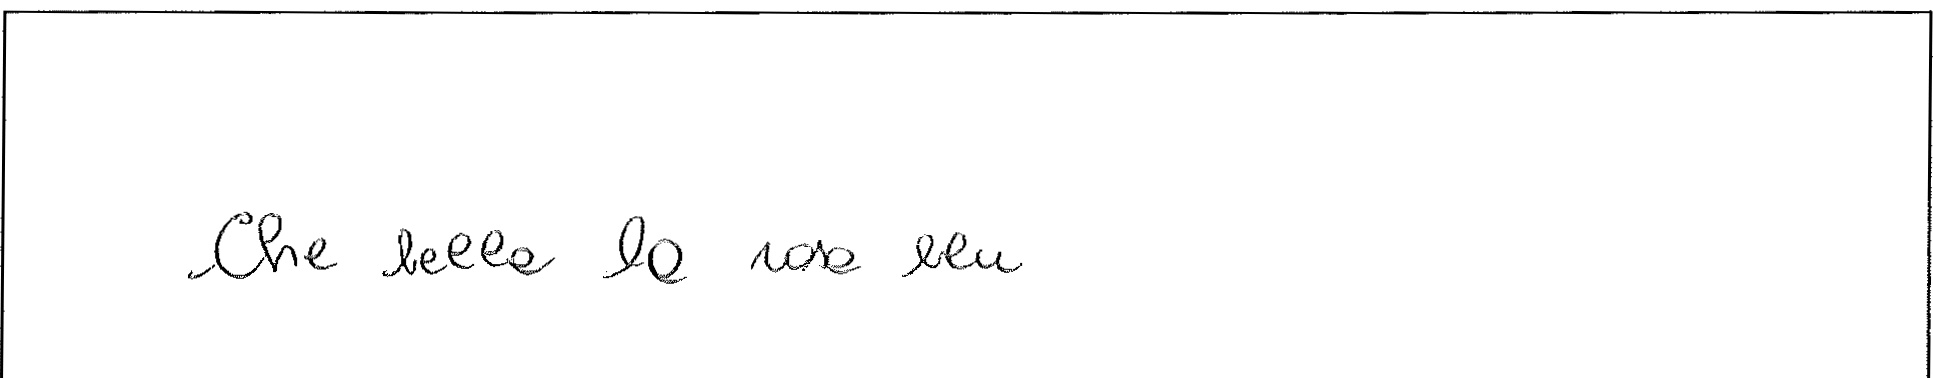 Che bella la rosa blu